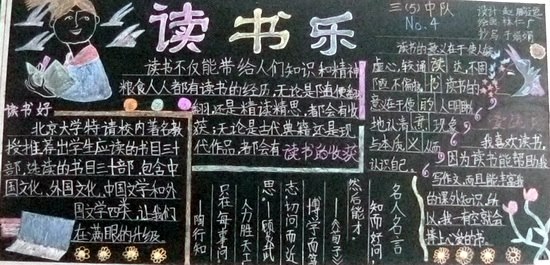 读书乐
三(5)中队
No.4
读书不仅能带给人们知识和精神
粮食人人都有读书的经历,无论是随便翻
翻还是精读精思,都会有收
获,无论是古代典籍还是现
代作品,都会有读书的收获
读书好
北京大学特请校内著名教
授推荐出学生应读的书目三
十部,选读的书目三十部,包含中
国文化,外国文化,中国文学和外
国文学四类,让我们
在满眼的升级
读书的意义在于使人较
虚心,较通达,不固
陋,不偏执,读书的
意义在于使人明晰
地认清现象
与本质,从而
认识自己。
我喜欢读书,
因为读书能帮助我
写作文,而且能丰富我
的课外知识,所
以,我一有空就会
捧上心爱的书。
名人名言
知而好问
然后能才
《荀子》
博学而笃
志,切问而近
思。顾炎武
人力胜天工
只在每事问
陶行知